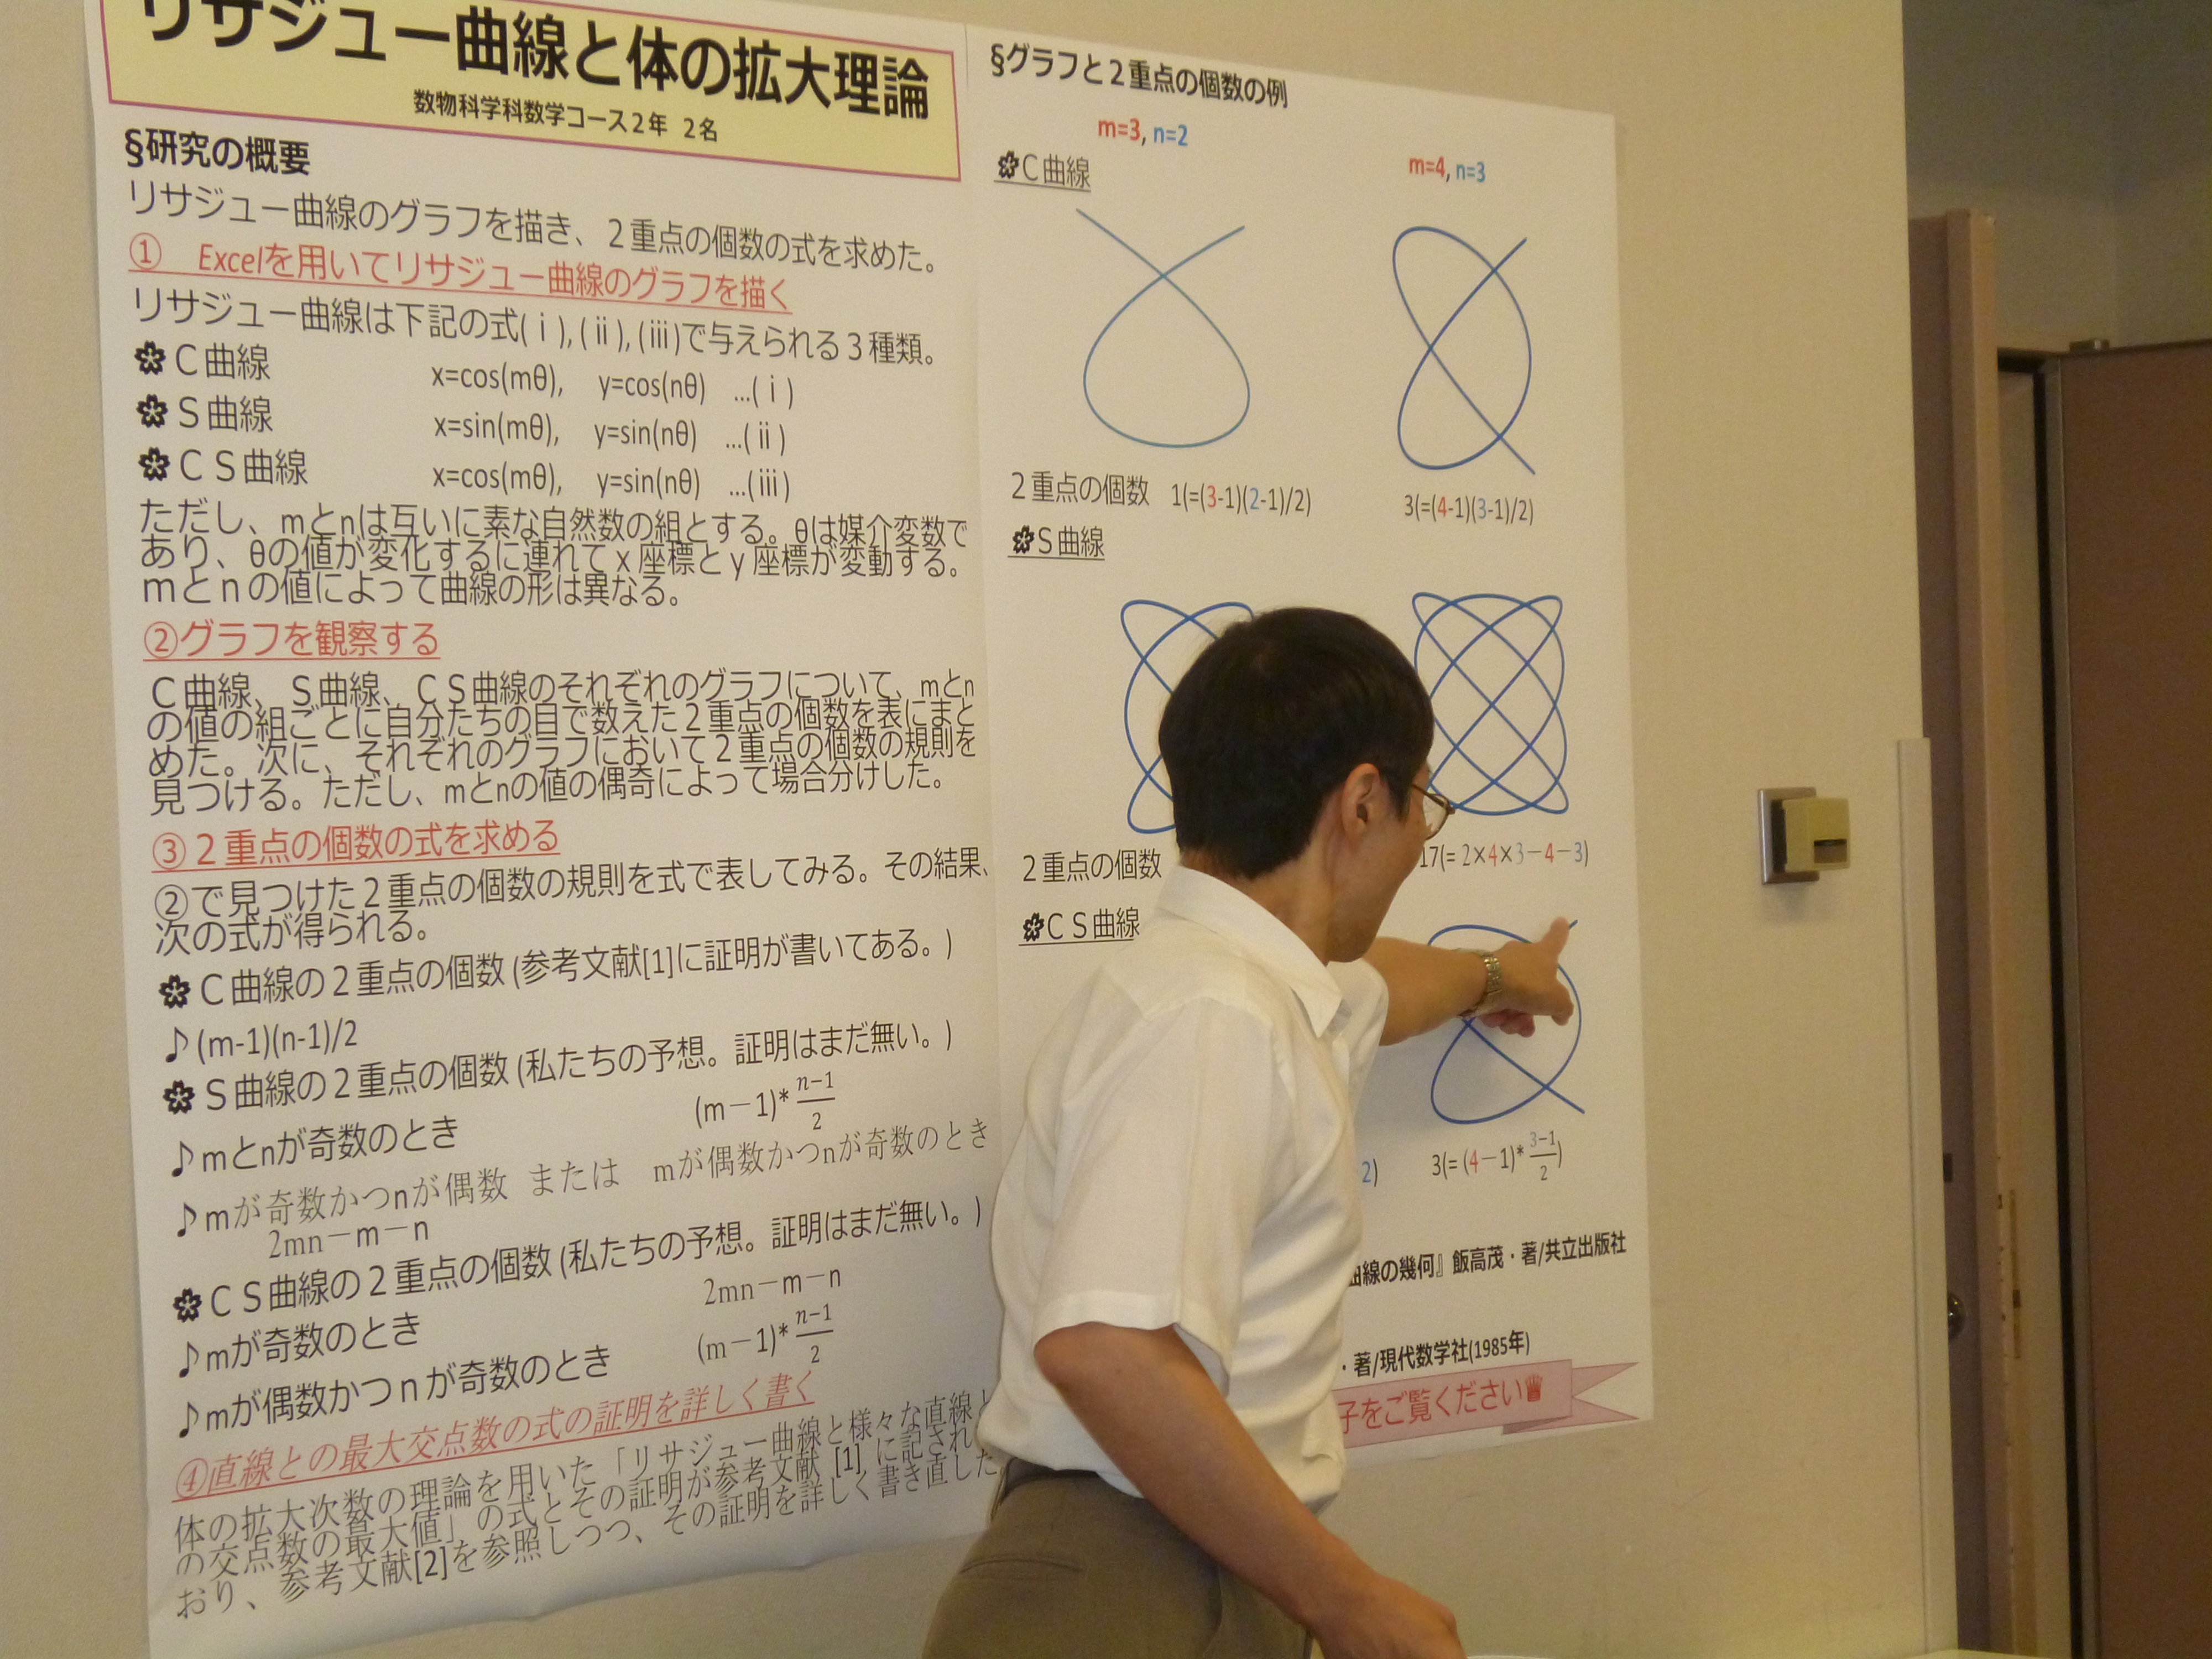 リサジュー曲線と体の拡大理論
数物科学科数学コース2年 2名
§研究の概要
リサジュー曲線のグラフを描き、2重点の個数の式を求めた。
① Excelを用いてリサジュー曲線のグラフを描く
リサジュー曲線は下記の式(ⅰ),(ⅱ),(ⅲ)で与えられる3種類。
C曲線 x=cos(mθ), y=cos(nθ) …(ⅰ)
S曲線 x=sin(mθ), y=sin(nθ) …(ⅱ)
CS曲線 x=cos(mθ), y=sin(nθ) …(ⅲ)
ただし、mとnは互いに素な自然数の組とする。θは媒介変数で
あり、θの値が変化するに連れてx座標とy座標が変動する。
mとnの値によって曲線の形は異なる。
②グラフを観察する
C曲線、S曲線、CS曲線のそれぞれのグラフについて、mとn
の値の組ごとに自分たちの目で数えた2重点の個数を表にまと
めた。次に、それぞれのグラフにおいて2重点の個数の規則を
見つける。ただし、mとnの値の偶奇によって場合分けした。
③2重点の個数の式を求める
②で見つけた2重点の個数の規則を式で表してみる。その結果、
次の式が得られる。
C曲線の2重点の個数(参考文献[1]に証明が書いてある。)
♪(m-1)(n-1)/2
S曲線の2重点の個数(私たちの予想。証明はまだ無い。)
♪mとnが奇数のとき (m-1)*(n-1)/2
♪mが奇数かつnが偶数 または mが偶数かつnが奇数のとき
2mn-m-n
CS曲線の2重点の個数(私たちの予想。証明はまだ無い。)
♪mが奇数のとき 2mn-m-n
♪mが偶数かつnが奇数のとき (m-1)*(n-1)/2
④直線との最大交点数の式の証明を詳しく書く
体の拡大次数の理論を用いた「リサジュー曲線と様々な直線と
の交点数の最大値」の式とその証明が参考文献[1]に記され
おり、参考文献[2]を参照しつつ、その証明を詳しく書き直した
§グラフと2重点の個数の例
m=3, n=2 m=4, n=3
C曲線
2重点の個数 1(=(3-1)(2-1)/2) 3(=(4-1)(3-1)/2)
S曲線
2重点の個数 17(= 2×4×3-4-3)
CS曲線
2) 3(= (4-1)*(3-1)/2)
曲線の幾何』飯高茂・著/共立出版社
・著/現代数学社(1985年)
子をご覧ください♛